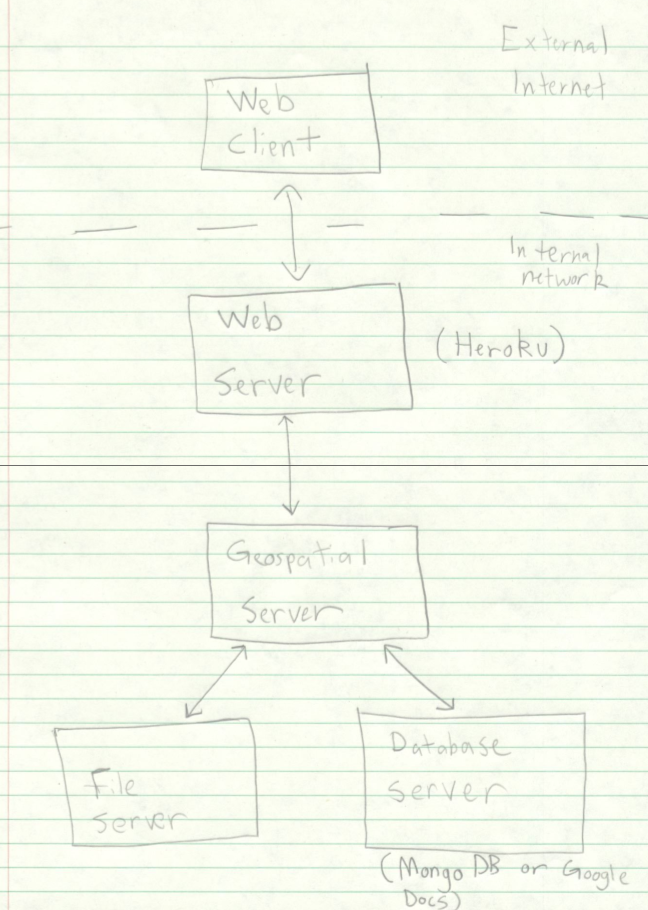 External
Internet
Web
Client
Internal
network
Web
Server
(Heroku)
Geospatial
Server
File
server
Database
server
(Mongo DB or Google
Docs)